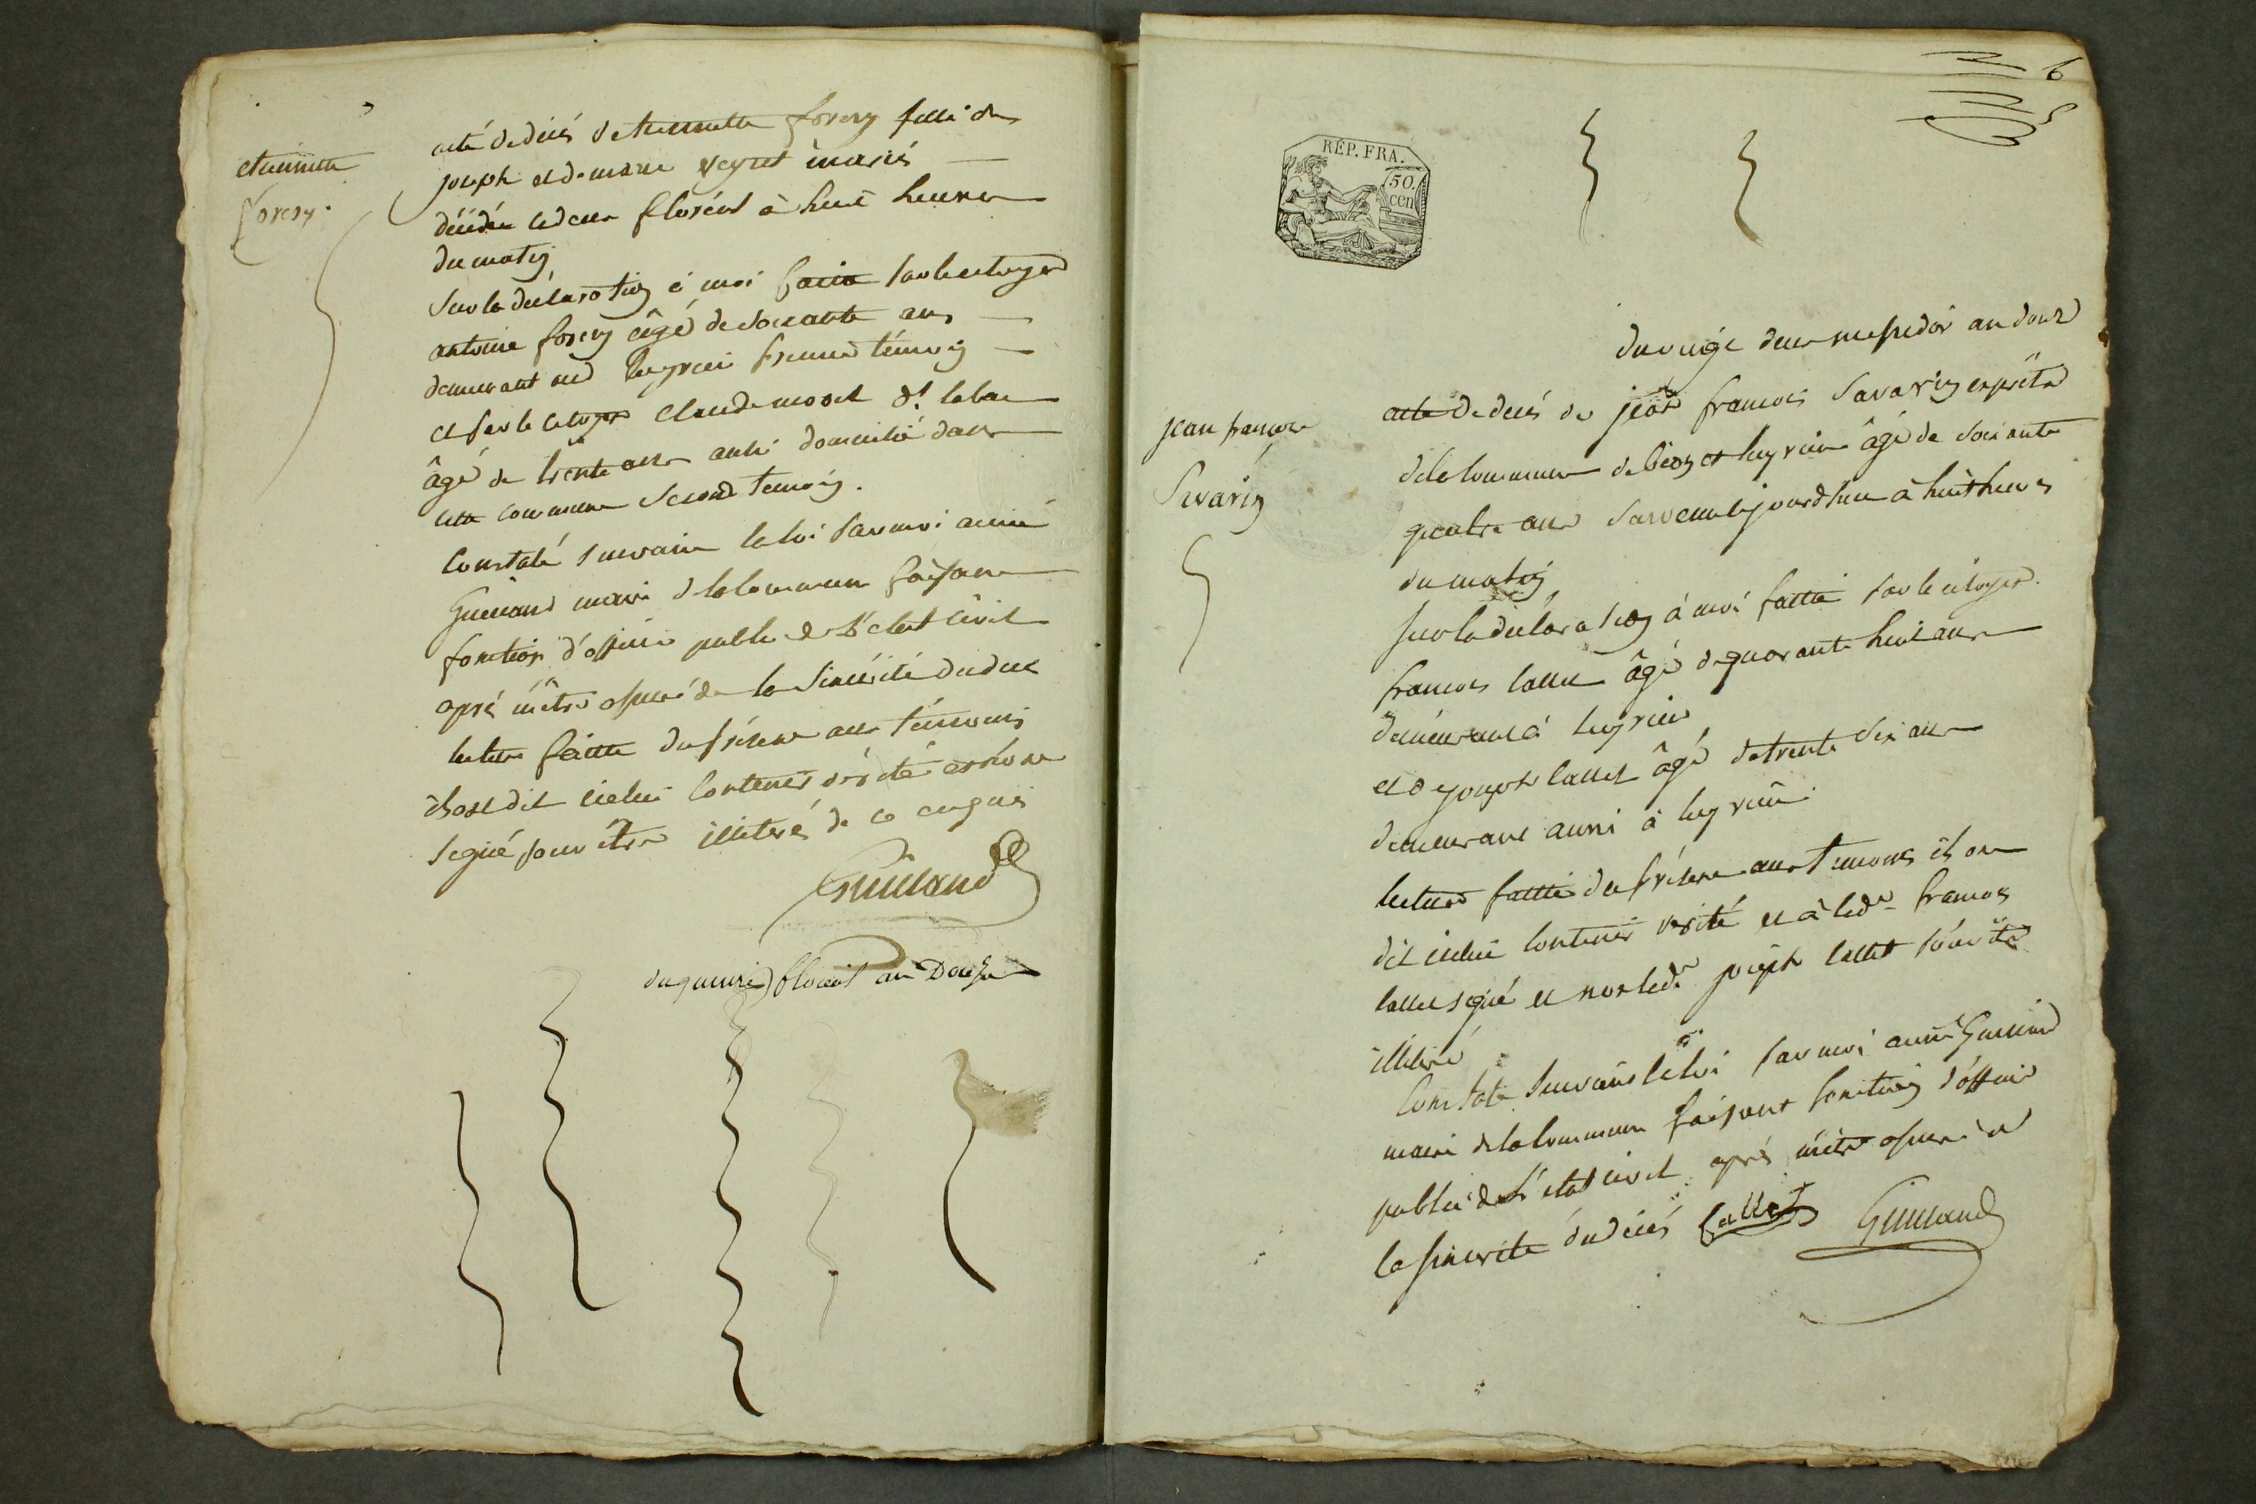 etiennette
foresy
acte de décés detiennette foresy fille de
joseph et de marie veyret mariés
décédée le deux floréal à huit heures
du matin
Sur la déclaration à moi faitte par le citoyen
antoine foresy âgé de soixante ans
demeurant premier témoin
et par le citoyen Claude morel
âgé de trente ans aussi domicilié dans
cette commune second temoin.
Constaté suivant la loi par moi aimé
Guilland maire de la commune faisant
fonction d'officier public de l'état civil
aprés m'être assuré de la sincérité dudece
lecture faitte du présent aux témoins
ils ont dit icelui contenir vérité et non
signé pour être illiterés de ce enquis
Guilland
du quinze floréal an Douze
6
RÉP. FRA.
50.
cen
du vingt deux messidor an douze
jean francois
Savarin
acte de decés de jean francois Savarin expretre
de la commune de Béon et luyrieu âgé de soixante
quatre ans survenu cejourdhui à huit heures
du matin
sur la déclaration à moi faitte par le citoyen
francois lallet âgé de quarante huit ans
demeurant à luyrieu
et de joseph lallet âgé de trente six ans
demeurant aussi à luyrieu
lecture faitte du présent aux temoins ils ont
dit icelui contenir verité et à led. francois
lallet signé et non led. joseph lallet pour être
illiteré
Constaté suivant la loi par moi aimé Guilland
maire de la commune faisant fonction d'officier
public de l'état civil aprés m'être assuré de
la sincerite du décés lallet Guilland